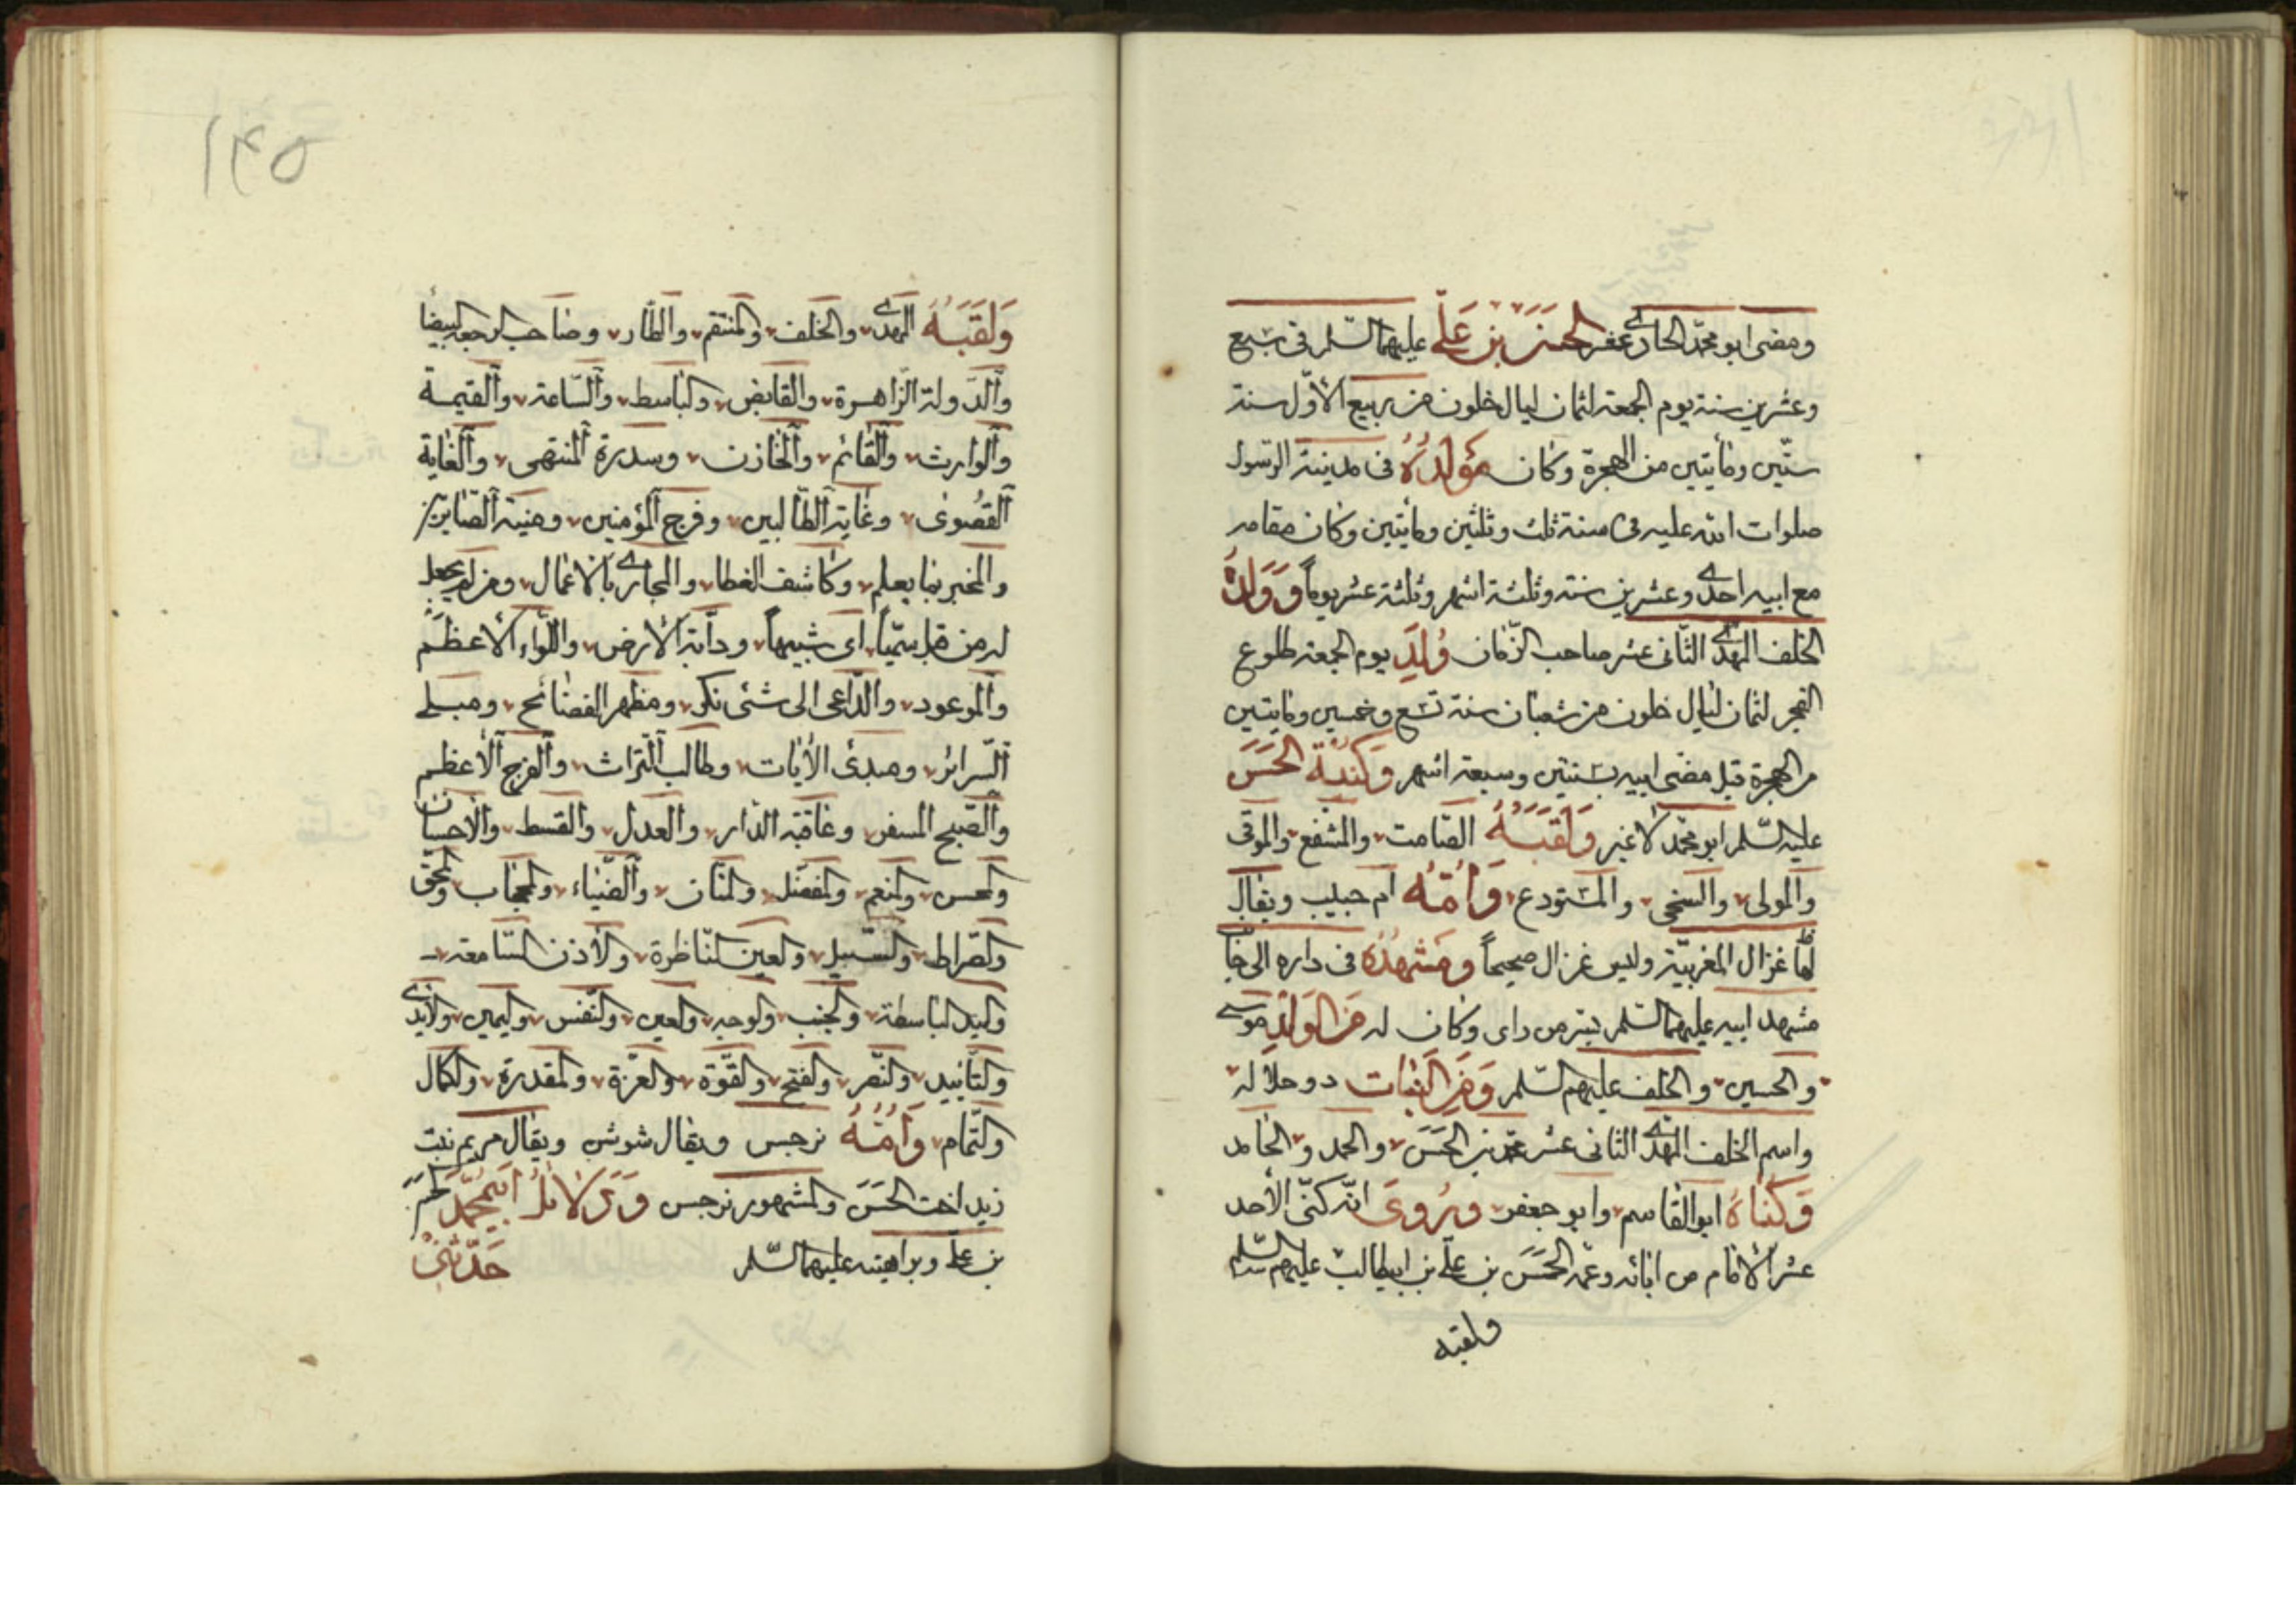 ومضى ابو محمد الحادي عشر الحسن بن علي عليهما السلم في سبع
وعشرين سنة يوم الجمعة لثمان ليال خلون من ربيع الأول سنة
ستين ومأيتين من الهجرة وكان مولده في مدينة الرسول
صلوات الله عليه في سنة ثلث وثلثين ومأيتين وكان مقامه
مع ابيه احدى وعشرين سنة وثلثة اشهر وثلثة عشر يوماً وولده
الخلف المهدي الثاني عشر صاحب الزمان ولد يوم الجمعة طلوع
الفجر لثمان ليال خلون من شعبان سنة تسع وخمسين ومايتين
من الهجرة قبل مضى ابيه بسنتين وسبعة اشهر وكنية الحسن
عليه السلم ابو محمد لا غير ولقبه الصامت والشفع والموفى
والمولى والسخي والمستودع وامه ام حبيب ويقال
لها غزال المغربية وليس غزال صحيحاً ومشهده في داره الى جا
مشهد ابيه عليهما السلم بسر من راى وكان له من الولد موسى
والحسين والخلف عليهم السلم ومن البنات دو حلاله
واسم الخلف المهدي الثاني عشر محمد بن الحسن والحمد والحامد
وكناه ابو القاسم وابو جعفر ويروى انه كنى الأحد
عشر الامام من ابائه وعمه الحسن بن علي بن ابيطالب عليهم السلم
ولقبه
١٤٥
ولقبه المهدي والخلف والمنتقم والطار وصاحب الرجعة البيضا
والدولة الزاهرة والقابض والباسط والساعة والقيمة
والوارث والقائم والخازن وسدرة المنتهى والغاية
القصوى وغاية الطالبين وفرج المؤمنين ومنية الصابرين
والمخبر بما يعلم وكاشف الغطا والمجازي بالاعمال ومن لم يجعل
له من قبل سمياً اى شبيهاً ودابة الارض واللواء الاعظم
والموعود والداعى الى شئ نكر ومظهر الفضائح ومبلى
السرائر ومبدئ الأيات وطالب التراث والفرج الأعظم
والصبح المسفر وعاقبة الدار والعدل والقسط والاحسان
والمحسن والمنعم والمفضل والمنان والضياء والحجاب والحق
والصراط والسبيل والعين الناظرة والأذن السامعة
واليد الباسطة والجنب والوجه والعين والنفس واليمين والأيدي
والتأييد والنصر والفتح والقوة والعزة والمقدرة والكمال
والتمام وامه نرجس ويقال شوش ويقال مريم بنت
زيد اخت الحسن والمشهور نرجس ودلائل ابيمحمد الحسن
بن علي وبراهينه عليهما السلم حدثني